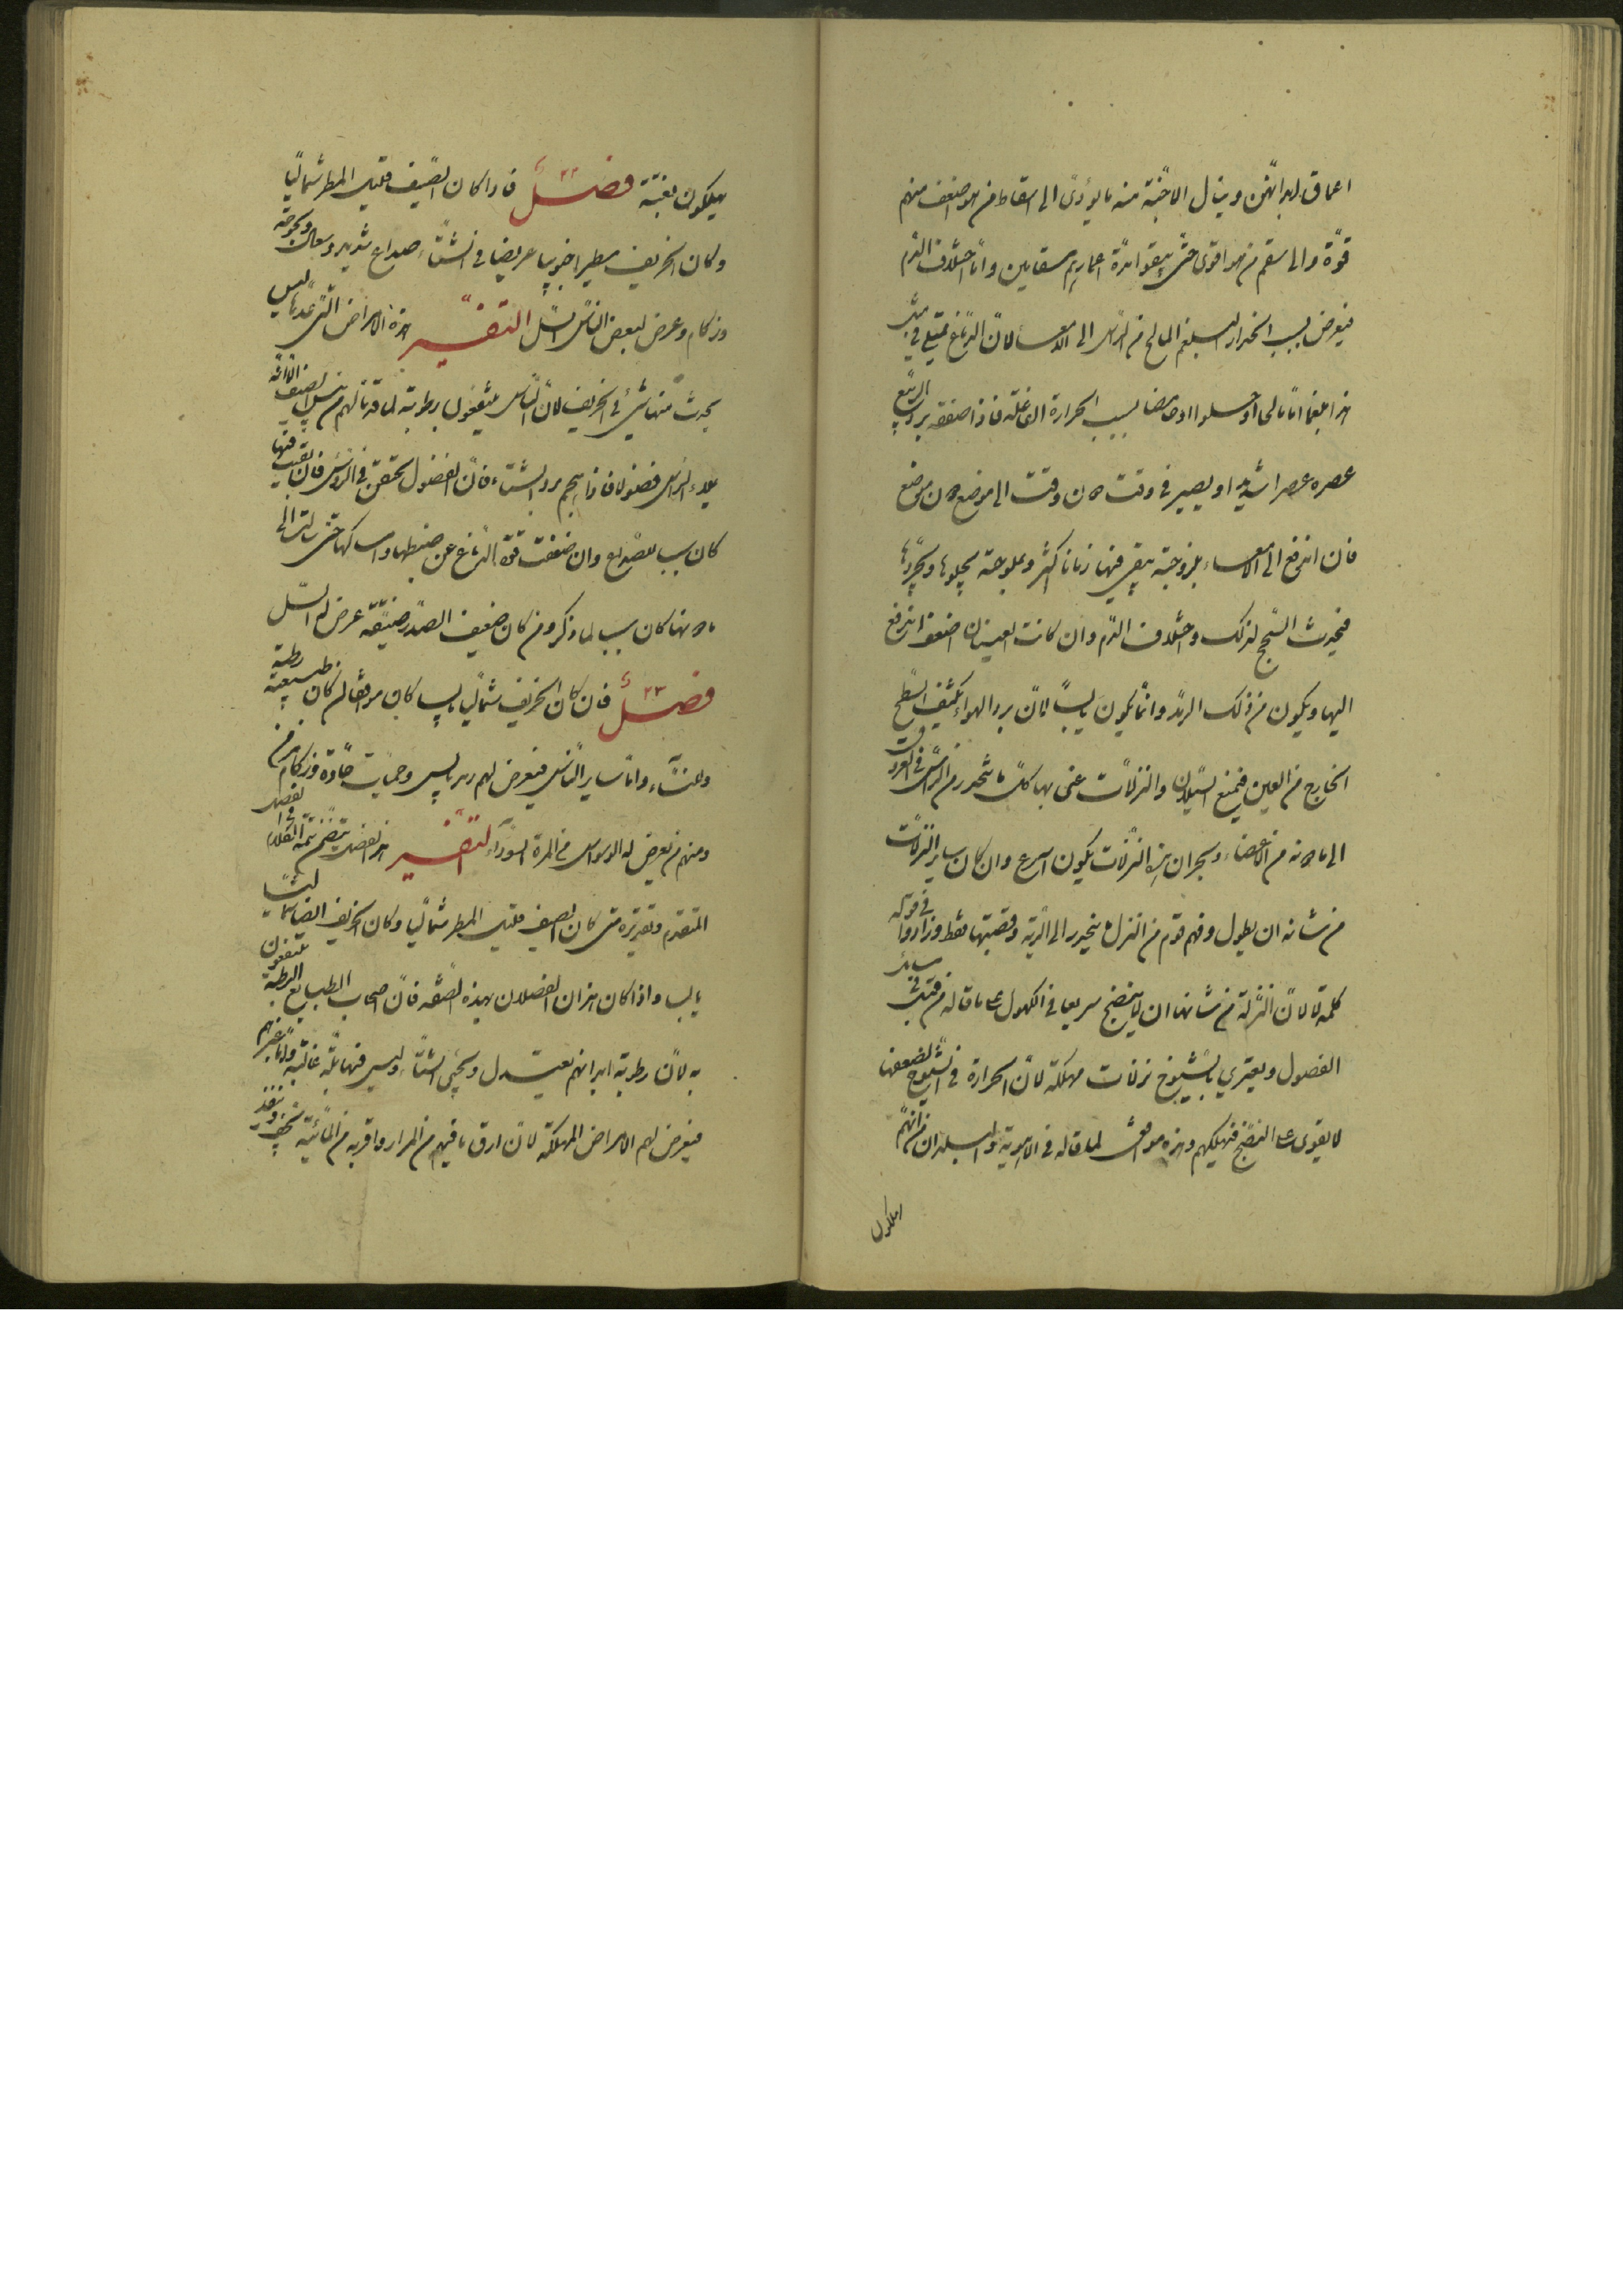 اعماق ابدانهن وينال الاجنة منه ما يؤدى الى اسقاط من هو اضعف منهم
قوة والى سقم من هو اقوى حتى يبقوا مدة اعمارهم مسقامين واما اختلاف الدم
فيعرض بسبب انحدار البلغم المالح من الراس الى الامعاء لان الدماغ يمتلى فى مثل
هذا بلغما اما مالحا او حلوا او حامضا بسبب الحرارة الفاعلة فاذا صفقه برد الربيع
عصره عصرا شديدا ويصير فى وقت دون وقت الى موضع دون موضع
فان اندفع الى الامعاء بلزوجته يبقى فيها زمانا كثيرا وبملوحته يجلوها ويجردها
فيحدث السحج لذلك واختلاف الدم وان كانت العينان اضعف اندفع
اليها ويكون من ذلك الرمد وانما يكون يابسا لان برد الهواء يكثف السطح
الخارج من العين فيمنع السيلان والنزلات عنى بها كل ما ينحدر من الراس فى العروق
الى ما دونه من الاعضاء وبحران هذه النزلات يكون اسرع وان كان ساير النزلات
من شانه ان يطول وفهم قوم من النزل ما ينحدر الى الرية وقصبتها فقط وزادوا فى قوله
كلمة لا لان النزلة من شانها ان لا ينضج سريعا فى الكهول على ما قاله من قبل فى ساير
الفصول ويعترى بالشيوخ نزلات مهلكة لان الحرارة فى الشيوخ لضعفها
لا يقوى على النضج فيهلكهم وهذه موافق لما قاله فى الاهوية والبلدان من انهم
يهلكون
يهلكون بغتة فصل ٢٢ فاذا كان الصيف قليل المطر شماليا
وكان الخريف مطيرا جنوبيا عرض فى الشتاء صداع شديد وسعال وبحوحة
وزكام وعرض لبعض الناس السل التفسير هذه الامراض التى عدها ليس
يحدث منها شئ فى الخريف لان الناس ينتفعون برطوبته لما قد نالهم من يبس الصيف الا انه
يملاء الراس فضولا فاذا هجم برد الشتاء فان الفضول تحتقن فى الراس فان بقيت فيها
كان سببا للصداع وان ضعفت قوة الدماغ عن ضبطها وامساكها حتى نزلت الى
ما دونها كان سببا لما ذكر ومن كان ضعيف الصدر ضيقه عرض له السل
فصل ٢٣ فان كان الخريف شماليا يابسا كان موافقا لمن كان طبيعته رطبة
وللنساء واما ساير الناس فيعرض لهم رمد يابس وحميات حادة وزكام مزمن
ومنهم من يعرض له الوسواس من المرة السوداء التفسير هذا الفصل يتضمن تتمة الكلام فى الفصل
المتقدم وتقديره متى كان الصيف قليل المطر شماليا وكان الخريف ايضا شماليا
يابسا واذا كان هذان الفصلان بهذه الصفة فان اصحاب الطبايع الرطبة ينتفعون
به لان رطوبة ابدانهم يعتدل ويجئ الشتاء وليس فيها بلة غالبة واما غيرهم
فيعرض لهم الامراض المهلكة لان ارق ما فيهم من المرار واقربه من المائية يجف وينفد